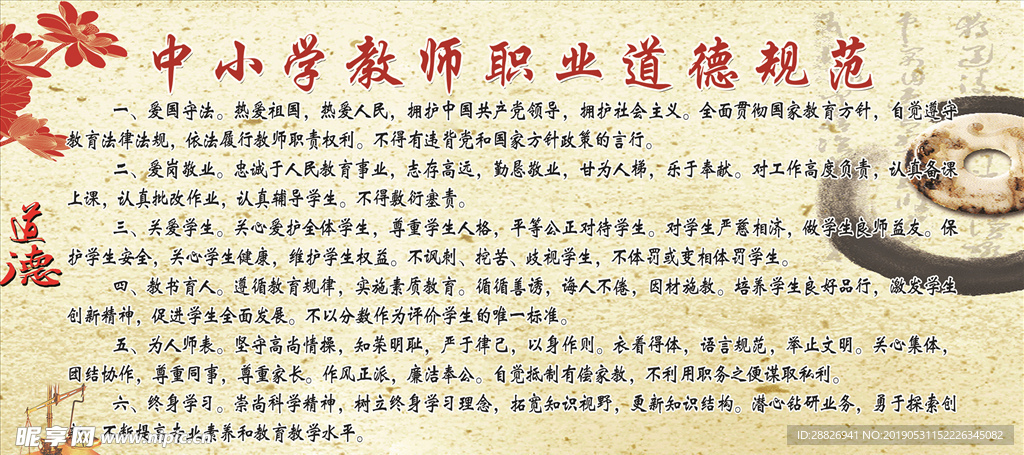 中小学教师职业道德规范
一、爱国守法。热爱祖国，热爱人民，拥护中国共产党领导，拥护社会主义。全面贯彻国家教育方针，自觉遵守
教育法律法规，依法履行教师职责权利。不得有违背党和国家方针政策的言行。
二、爱岗敬业。忠诚于人民教育事业，志存高远，勤恳敬业，甘为人梯，乐于奉献。对工作高度负责，认真备课
上课，认真批改作业，认真辅导学生。不得敷衍塞责。
三、关爱学生。关心爱护全体学生，尊重学生人格，平等公正对待学生。对学生严慈相济，做学生良师益友。保
护学生安全，关心学生健康，维护学生权益。不讽刺、挖苦、歧视学生，不体罚或变相体罚学生。
四、教书育人。遵循教育规律，实施素质教育。循循善诱，诲人不倦，因材施教。培养学生良好品行，激发学生
创新精神，促进学生全面发展。不以分数作为评价学生的唯一标准。
五、为人师表。坚守高尚情操，知荣明耻，严于律己，以身作则。衣着得体，语言规范，举止文明。关心集体，
团结协作，尊重同事，尊重家长。作风正派，廉洁奉公。自觉抵制有偿家教，不利用职务之便谋取私利。
六、终身学习。崇尚科学精神，树立终身学习理念，拓宽知识视野，更新知识结构。潜心钻研业务，勇于探索创
不断提高专业素养和教育教学水平。
道德
昵享网 www.nipic.cn
ID:28826941 NO:20190531152226345082